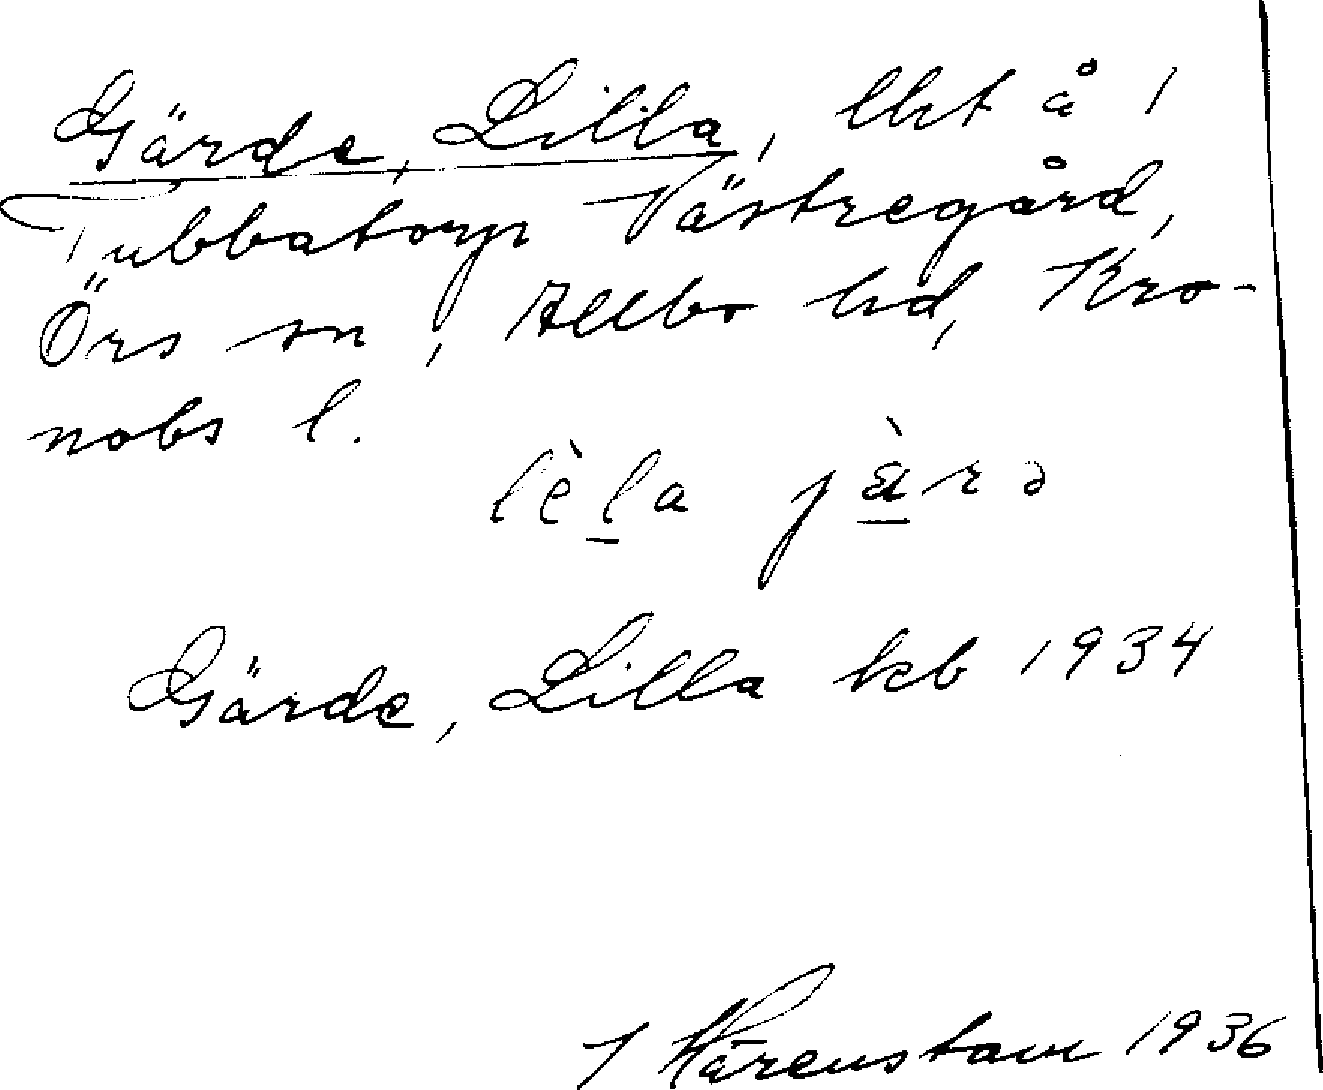 Gärde, Lilla, lht å 1
Tubbatorp Västregård,
Örs sn, Allbo hd, Kro-
nobs l.
lèla jæ̀rə
Gärde, Lilla kb 1934
J Härenstam 1936